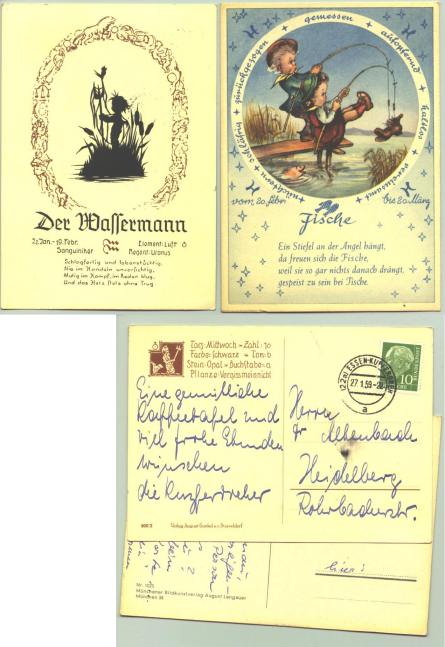 Der Wassermann
21. Jan. - 19. Febr.
Sanguiniker
Element: Luft
Regent: Uranus
Schlagfertig und lebenstüchtig,
Nie im Handeln unvorsichtig,
Mutig im Kampf, im Reden klug,
Und das Herz stets ohne Trug
zurückgezogen + gemessen + aufopfernd + haltlos + vereinsamt + nüchtern +
vom 20. Febr.
bis 20. März
Fische
Ein Stiefel an der Angel hängt,
da freuen sich die Fische,
weil sie so gar nichts danach drängt,
gespeist zu sein bei Tische.
Tag: Mittwoch - Zahl: 10
Farbe: Schwarz - Ton: b
Stein: Opal - Buchstabe: a
Pflanze: Vergissmeinnicht
Eine gemütliche
Kaffeetafel und
viel frohe Stunden
wünschen
die
900/2
Verlag August Gunkel Düsseldorf
(22a) ESSEN-
27.1.59
a
10
Herrn
Dr
Heidelberg
Rohrbacherstr.
Nr. 1025
Münchener Bildkunstverlag August Lengauer
München 38